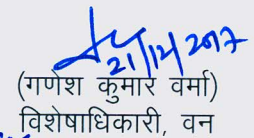 21/12/2017
(गणेश कुमार वर्मा)
विशेषाधिकारी, वन